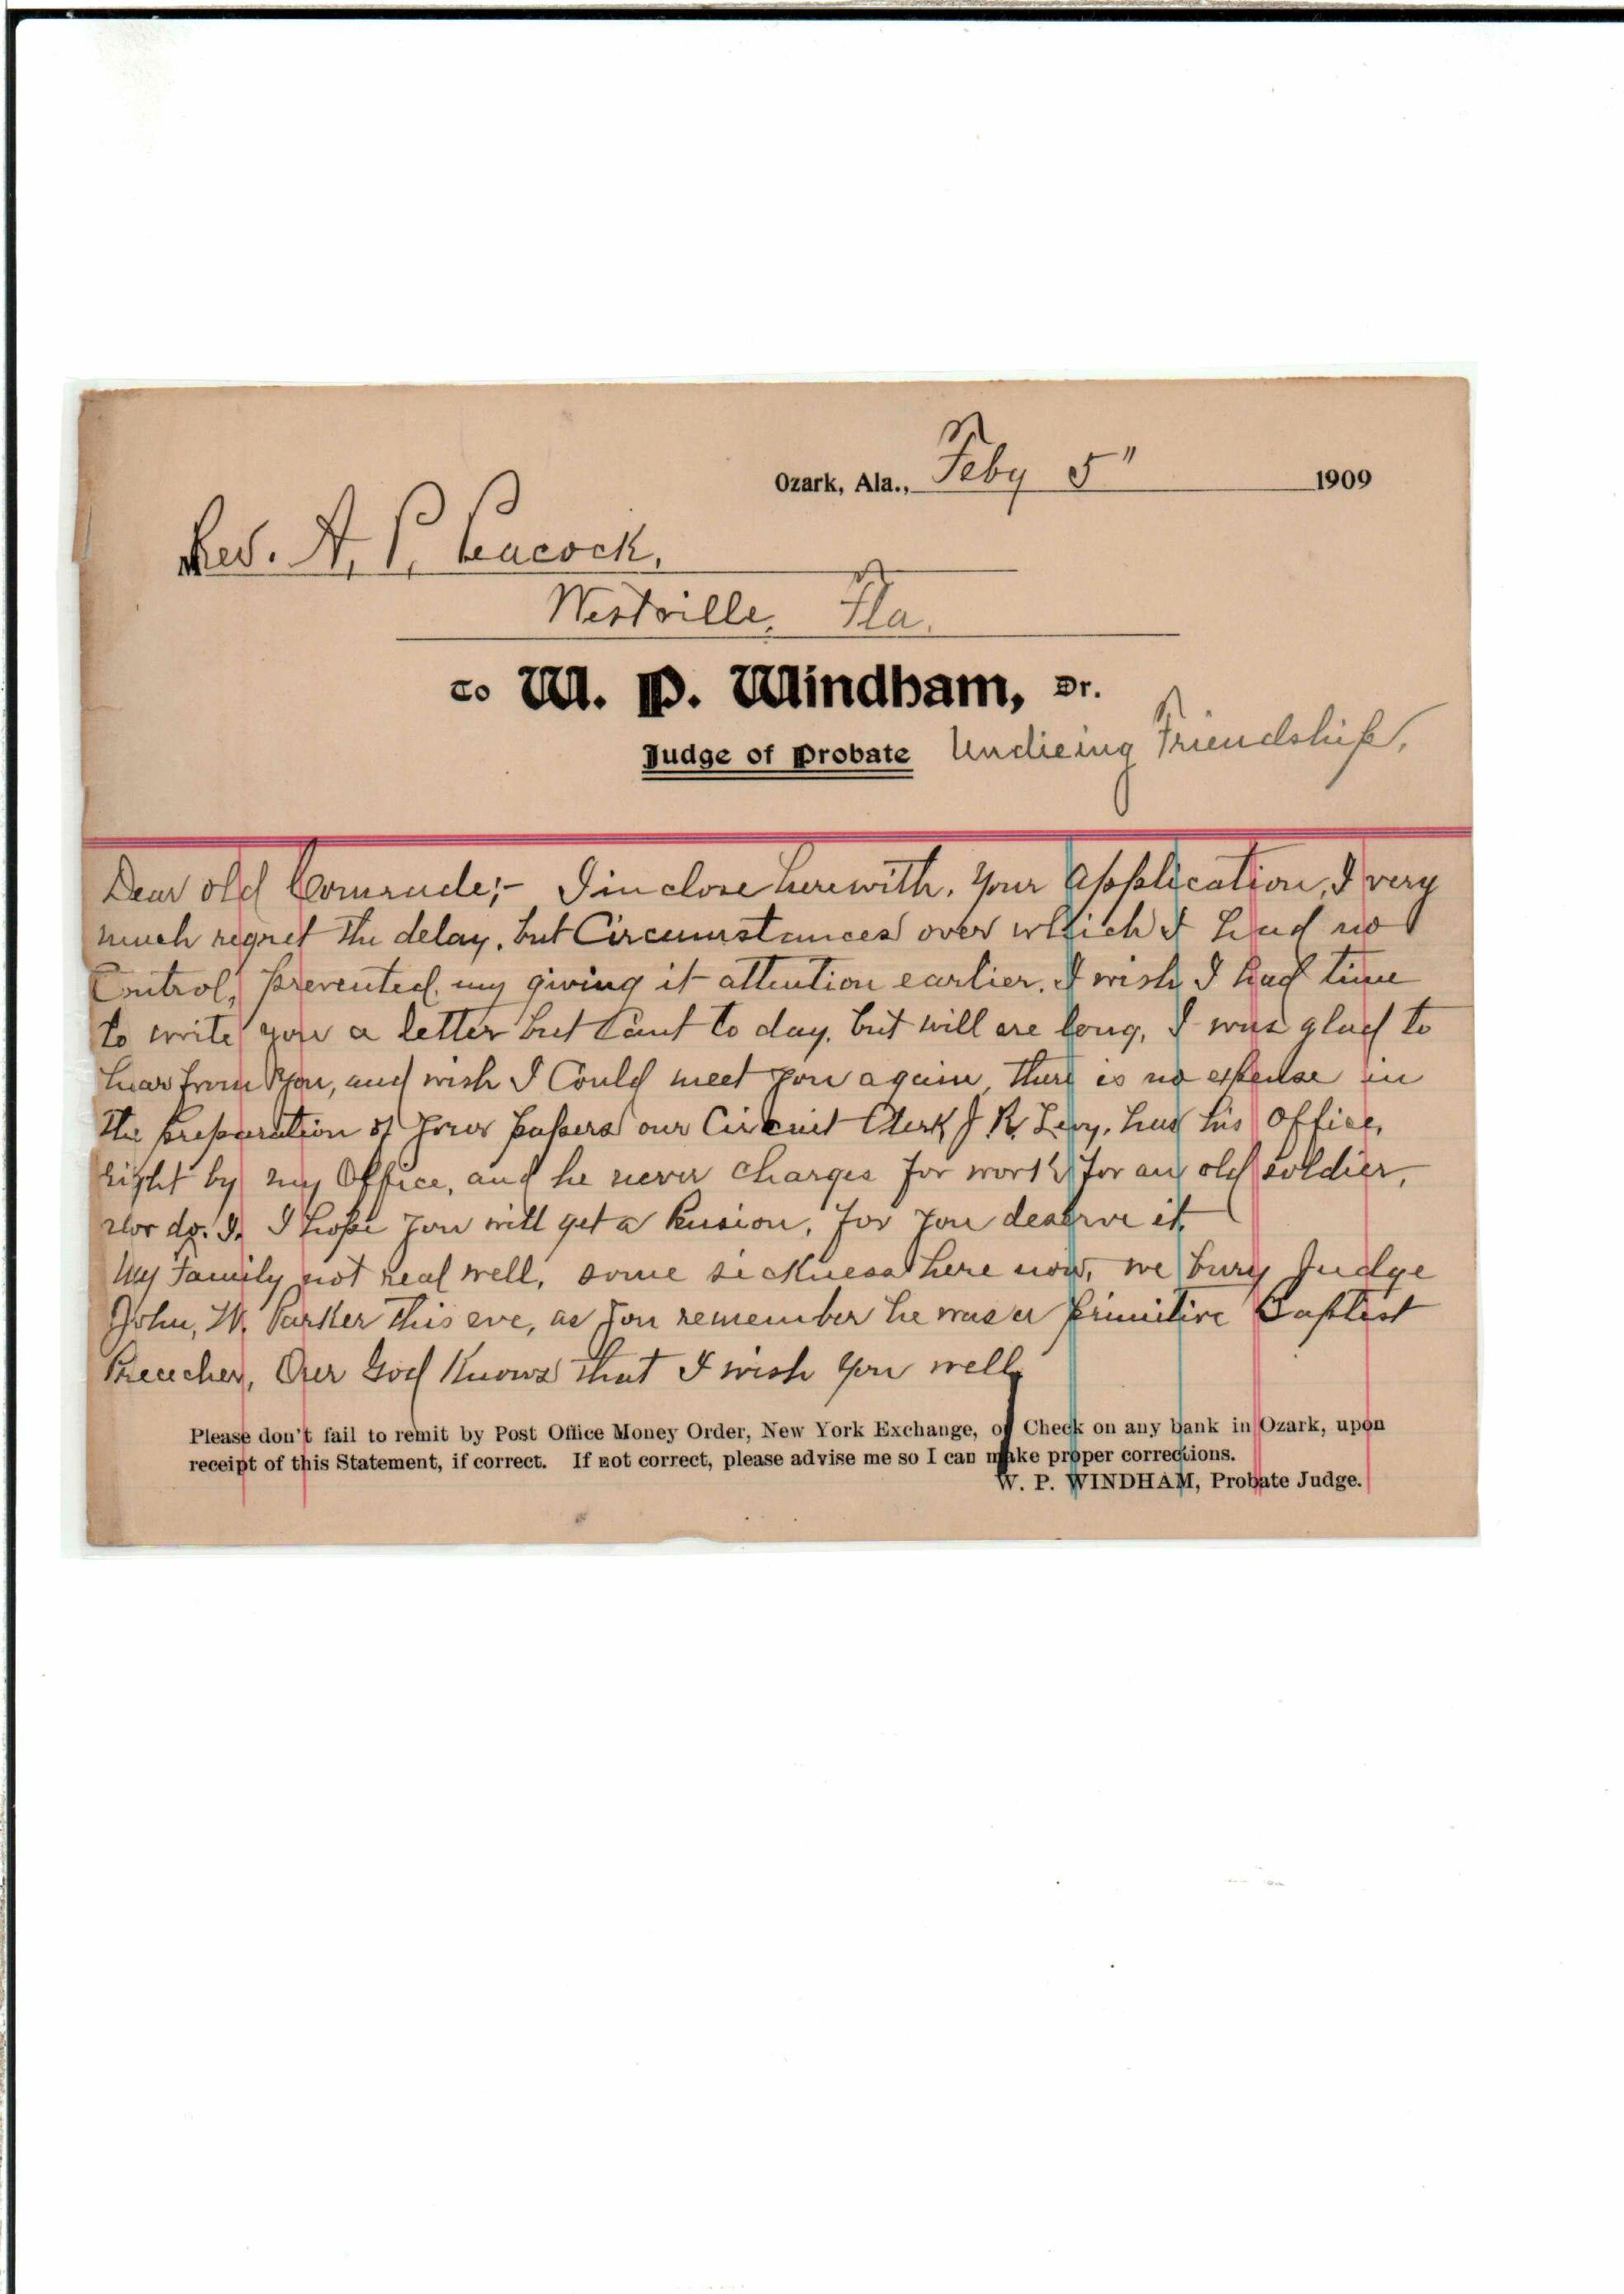 Ozark, Ala., Feby 5" 1909
Rev. A, P, Peacock,
Westville, Fla.
To W. P. Windham, Dr.
Judge of Probate Undieing Friendship,
Dear old Comrade;- I inclose herewith, your application, I very
much regret the delay, but Circumstances over which I had no
Control, prevented, my giving it attention earlier. I wish I had time
to write you a letter but Cant to day, but will ere long, I was glad to
hear from you, and wish I Could meet you again, there is no expense in
the preparation of your papers our Circuit Clerk J. R. Levy, has his office,
right by my Office, and he never charges for work for an old soldier,
nor do. I. I hope you will get a Pension, for you deserve it,
My Family not real well, some sickness here now, we bury Judge
John, W. Parker this eve, as you remember he was a primitive Baptist
Preecher, Our God Knows that I wish you well,
Please don't fail to remit by Post Office Money Order, New York Exchange, or Check on any bank in Ozark, upon
receipt of this Statement, if correct. If not correct, please advise me so I can make proper corrections.
W. P. WINDHAM, Probate Judge.